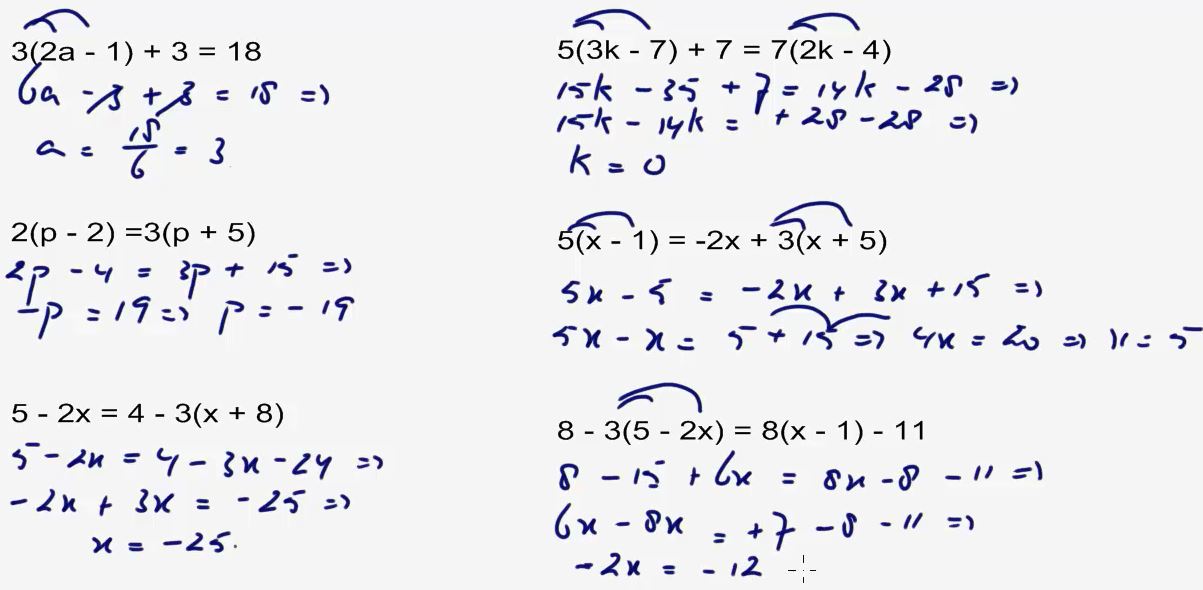 3(2a - 1) + 3 = 18
6a - 3 + 3 = 18 =>
a = 18/6 = 3
2(p - 2) =3(p + 5)
2p - 4 = 3p + 15 =>
-p = 19 => p = - 19
5 - 2x = 4 - 3(x + 8)
5 - 2x = 4 - 3x - 24 =>
-2x + 3x = -25 =>
x = -25.
5(3k - 7) + 7 = 7(2k - 4)
15k - 35 + 7 = 14k - 28 =>
15k - 14k = + 28 - 28 =>
k = 0
5(x - 1) = -2x + 3(x + 5)
5x - 5 = -2x + 3x + 15 =>
5x - x = 5 + 15 => 4x = 20 => x = 5
8 - 3(5 - 2x) = 8(x - 1) - 11
8 - 15 + 6x = 8x - 8 - 11 =>
6x - 8x = +7 - 8 - 11 =>
-2x = -12